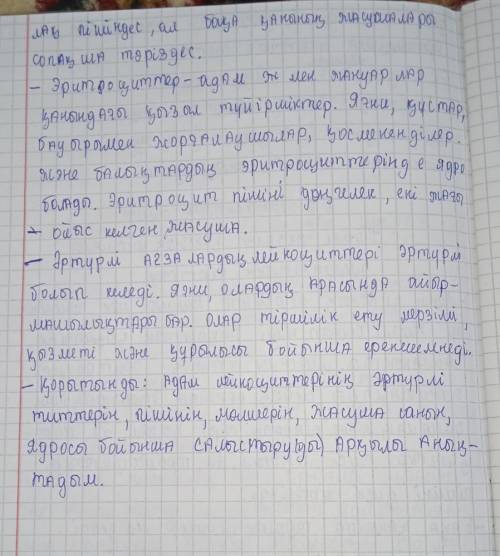 лақ пішіндес, ал бақа қанының жасушалары
сопақша тәріздес.
- Эритроциттер - адам ж мен жануарлар
қанындағы қызыл түйіршіктер. Яғни, құстар,
бауырымен жорғалаушылар, қосмекенділер
және балықтардың эритроциттерінде ядро
болады. Эритроцит пішіні дөңгелек, екі жағы
- ойыс келген жасуша.
- Әртүрлі ағзалардың лейкоциттері әртүрлі
болып келеді. Яғни, олардың арасында айыр-
машылықтары бар. Олар тіршілік ету мерзімі,
қызметі және құрылысы бойынша ерекшеленеді.
- Қорытынды: Адам лейкоциттерінің әртүрлі
типтерін, пішінін, мөлшерін, жасуша санын,
ядросы бойынша салыстыру(ды) арқылы анық-
тадым.